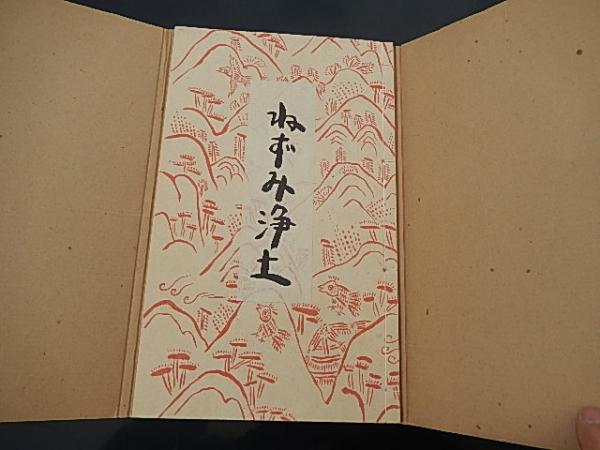 ねずみ浄土